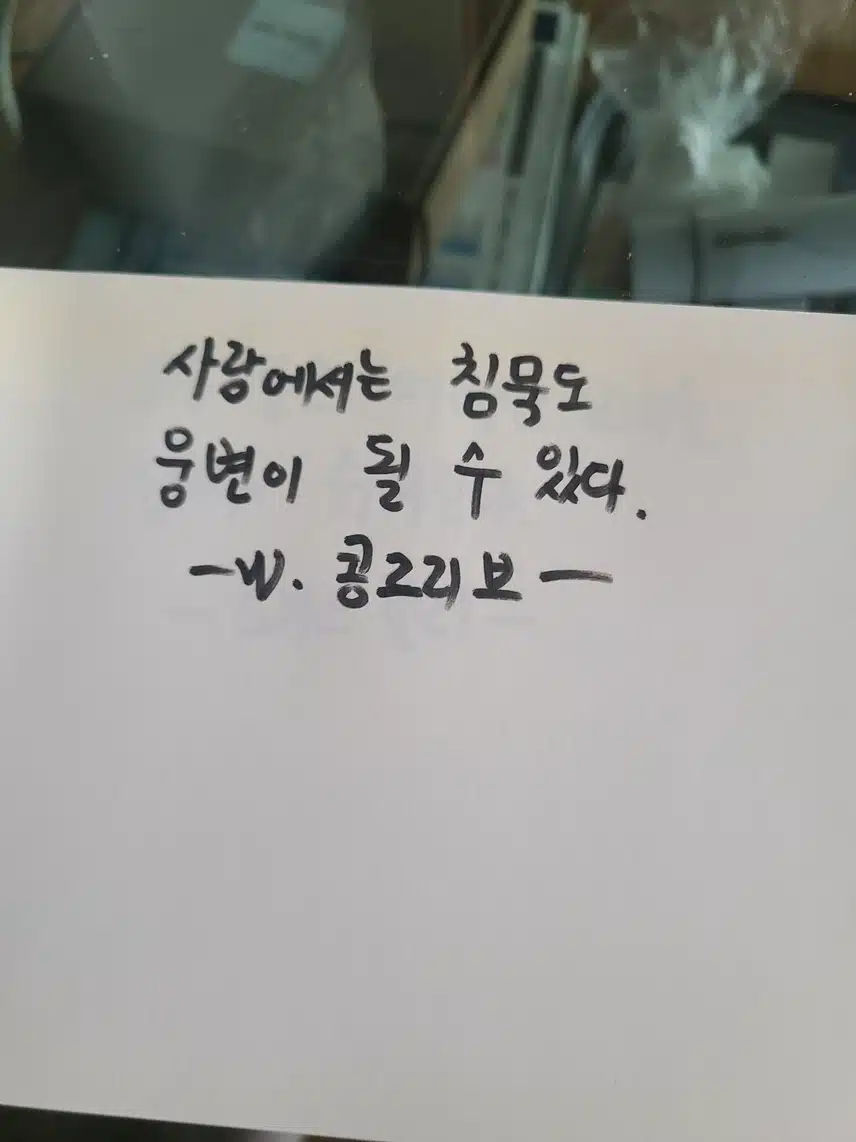 사랑에서는 침묵도
웅변이 될 수 있다.
-W. 콩그리브-